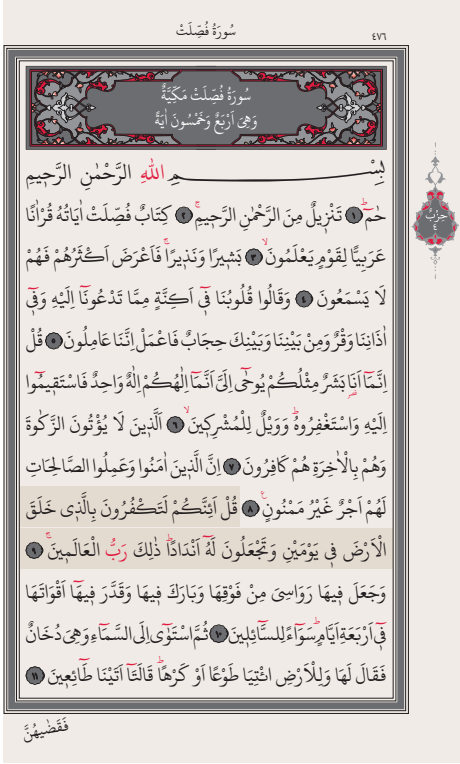 سُورَةُ فُصِّلَتْ
٤٧٦
سُورَةُ فُصِّلَتْ مَكِّيَّةٌ
وَهِيَ اَرْبَعٌ وَخَمْسُونَ اٰيَةً
بِسْمِ اللّٰهِ الرَّحْمٰنِ الرَّحٖيمِ
حٰمٓ ١ تَنْزٖيلٌ مِنَ الرَّحْمٰنِ الرَّحٖيمِۚ ٢ كِتَابٌ فُصِّلَتْ اٰيَاتُهُ قُرْاٰنًا
عَرَبِيًّا لِقَوْمٍ يَعْلَمُونَۙ ٣ بَشٖيرًا وَنَذٖيرًاۚ فَاَعْرَضَ اَكْثَرُهُمْ فَهُمْ
لَا يَسْمَعُونَ ٤ وَقَالُوا قُلُوبُنَا فٖٓي اَكِنَّةٍ مِمَّا تَدْعُونَٓا اِلَيْهِ وَفٖٓي
اٰذَانِنَا وَقْرٌ وَمِنْ بَيْنِنَا وَبَيْنِكَ حِجَابٌ فَاعْمَلْ اِنَّنَا عَامِلُونَ ٥ قُلْ
اِنَّمَٓا اَنَا۬ بَشَرٌ مِثْلُكُمْ يُوحٰٓى اِلَيَّ اَنَّمَٓا اِلٰهُكُمْ اِلٰهٌ وَاحِدٌ فَاسْتَقٖيمُٓوا
اِلَيْهِ وَاسْتَغْفِرُوهُۜ وَوَيْلٌ لِلْمُشْرِكٖينَۙ ٦ اَلَّذٖينَ لَا يُؤْتُونَ الزَّكٰوةَ
وَهُمْ بِالْاٰخِرَةِ هُمْ كَافِرُونَ ٧ اِنَّ الَّذٖينَ اٰمَنُوا وَعَمِلُوا الصَّالِحَاتِ
لَهُمْ اَجْرٌ غَيْرُ مَمْنُونٍ۟ ٨ قُلْ اَئِنَّكُمْ لَتَكْفُرُونَ بِالَّذٖي خَلَقَ
الْاَرْضَ فٖي يَوْمَيْنِ وَتَجْعَلُونَ لَهُٓ اَنْدَادًاۜ ذٰلِكَ رَبُّ الْعَالَمٖينَۚ ٩
وَجَعَلَ فٖيهَا رَوَاسِيَ مِنْ فَوْقِهَا وَبَارَكَ فٖيهَا وَقَدَّرَ فٖيهَٓا اَقْوَاتَهَا
فٖٓي اَرْبَعَةِ اَيَّامٍۜ سَوَٓاءً لِلسَّٓائِلٖينَ ١٠ ثُمَّ اسْتَوٰٓى اِلَى السَّمَٓاءِ وَهِيَ دُخَانٌ
فَقَالَ لَهَا وَلِلْاَرْضِ ائْتِيَا طَوْعًا اَوْ كَرْهًاۜ قَالَتَٓا اَتَيْنَا طَٓائِعٖينَ ١١
فَقَضٰيهُنَّ
حِزْبْ
٤